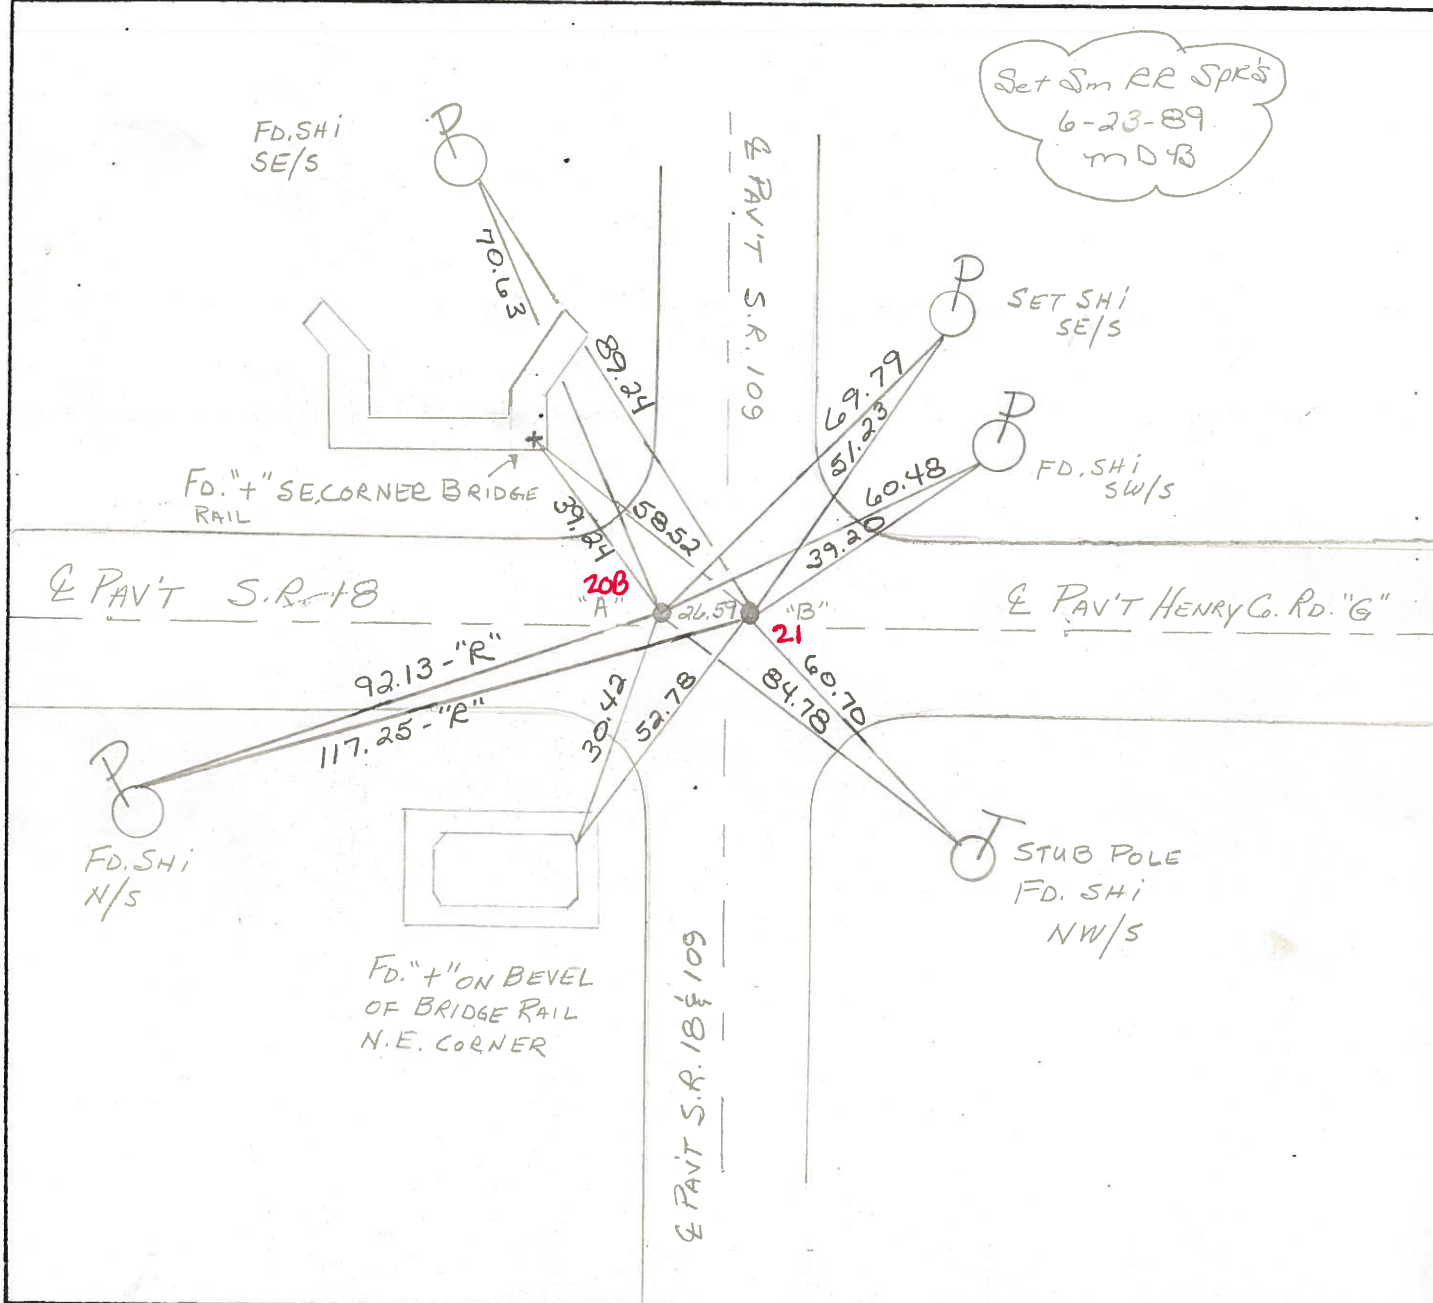 Set Sm RR Spk's
6-23-89
MDB
FD. SHi
SE/S
P
70.63
89.24
℄ PAV'T S.R. 109
P
SET SHi
SE/S
69.79
51.23
P
FD. SHi
SW/S
60.48
39.20
FD. "+" SE. CORNER BRIDGE
RAIL
39.24
58.52
℄ PAV'T S.R. 18
20B
"A"
26.59
"B"
21
℄ PAV'T HENRY CO. RD. "G"
92.13-"R"
117.25-"R"
30.42
52.78
84.78
60.70
P
FD. SHi
N/S
T
STUB POLE
FD. SHi
NW/S
FD. "+" ON BEVEL
OF BRIDGE RAIL
N.E. CORNER
℄ PAV'T S.R. 18 & 109